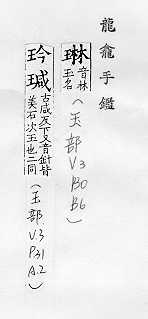 龍龕手鑑
琳 音林
玉名
(玉部 V3 B0 B6)
玪瑊 古咸反下又音針
美石次玉也二同
(玉部 V3 P.31 A.2)